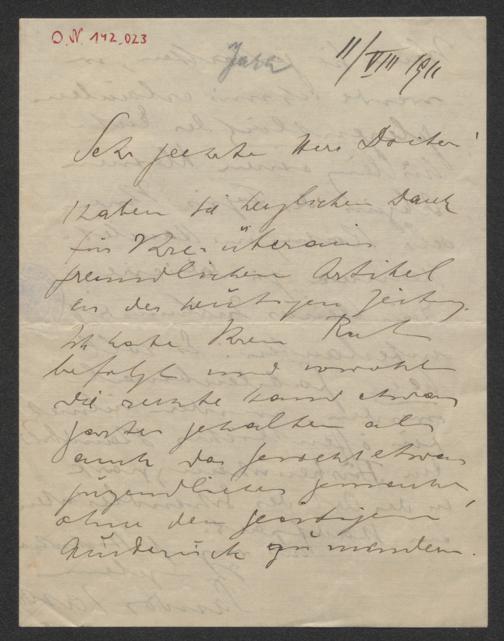 O.N. 142.023
Jara
11/VIII 1911
Sehr geehrter Herr Doctor!
Haben Sie herzlichen Dank
für Ihren überaus
freundlichen Artikel
in der heutigen Zeitung.
Ich habe Ihren Rat
befolgt und sowohl
die rechte Hand etwas
zarter gehalten als
auch das Gesicht etwas
jugendlicher gemacht,
ohne den geistigen
Ausdruck zu mindern.